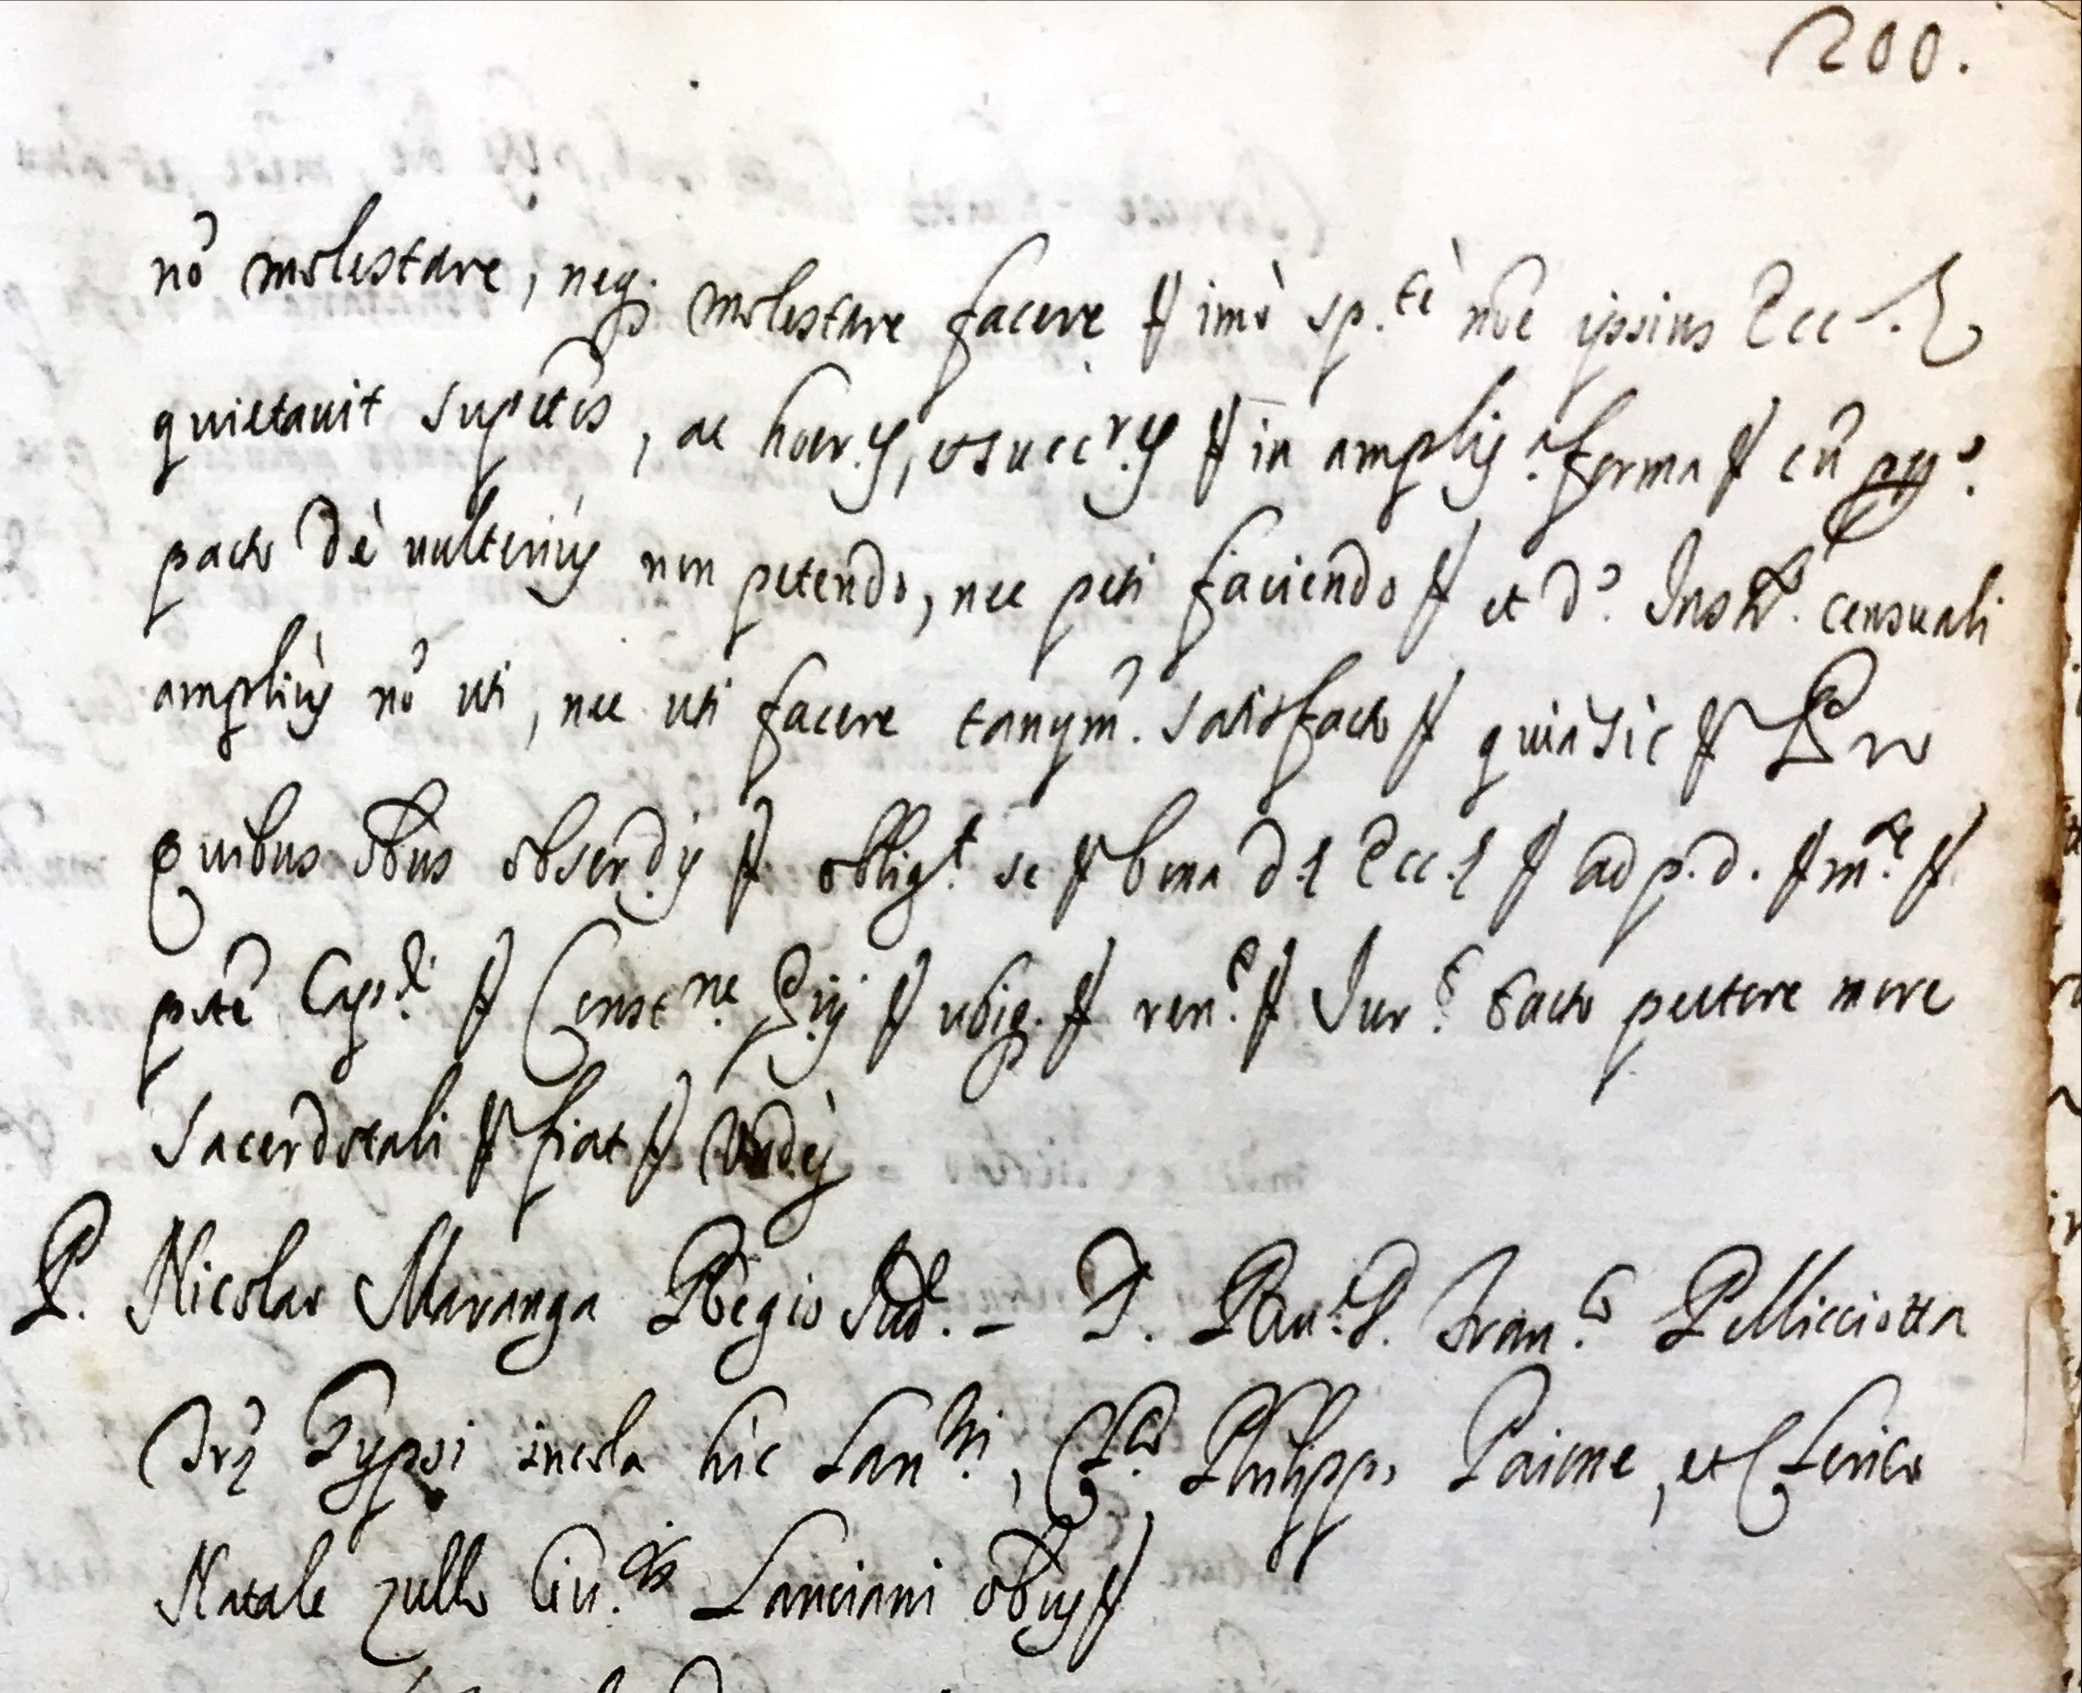 200.
nō molestare, neq. molestare facere // imò sp.tè nõe ipsius Ecc.
quietauit supẽtis, ac hoer.s, et succ.rs // in ampliss.a forma // cũ
pacto dè uulterius non petendo, nec peti faciendo // et d.o Instr.o censuali
amplius nō uti, nec uti facere tanqm̃. satisfacto // quia sic // Pro
quibus õbus obser.dis // oblig.t se // bona d.e Ecc.e // ad p.d. // m.e //
ptẽ Cap.di // Const.ne // ubiq. // ren.t // Jur.t tacto pectore more
Sacerdotali // fiat //
P. Nicolao Maranga Regio Iud.e - D. Fran.co Pellicciotta
Trẽ Gypsi incola hic Lan.ni, Philippo Paione, et Clerico
Natale zullo Ciu.tis Lanciani õbus //